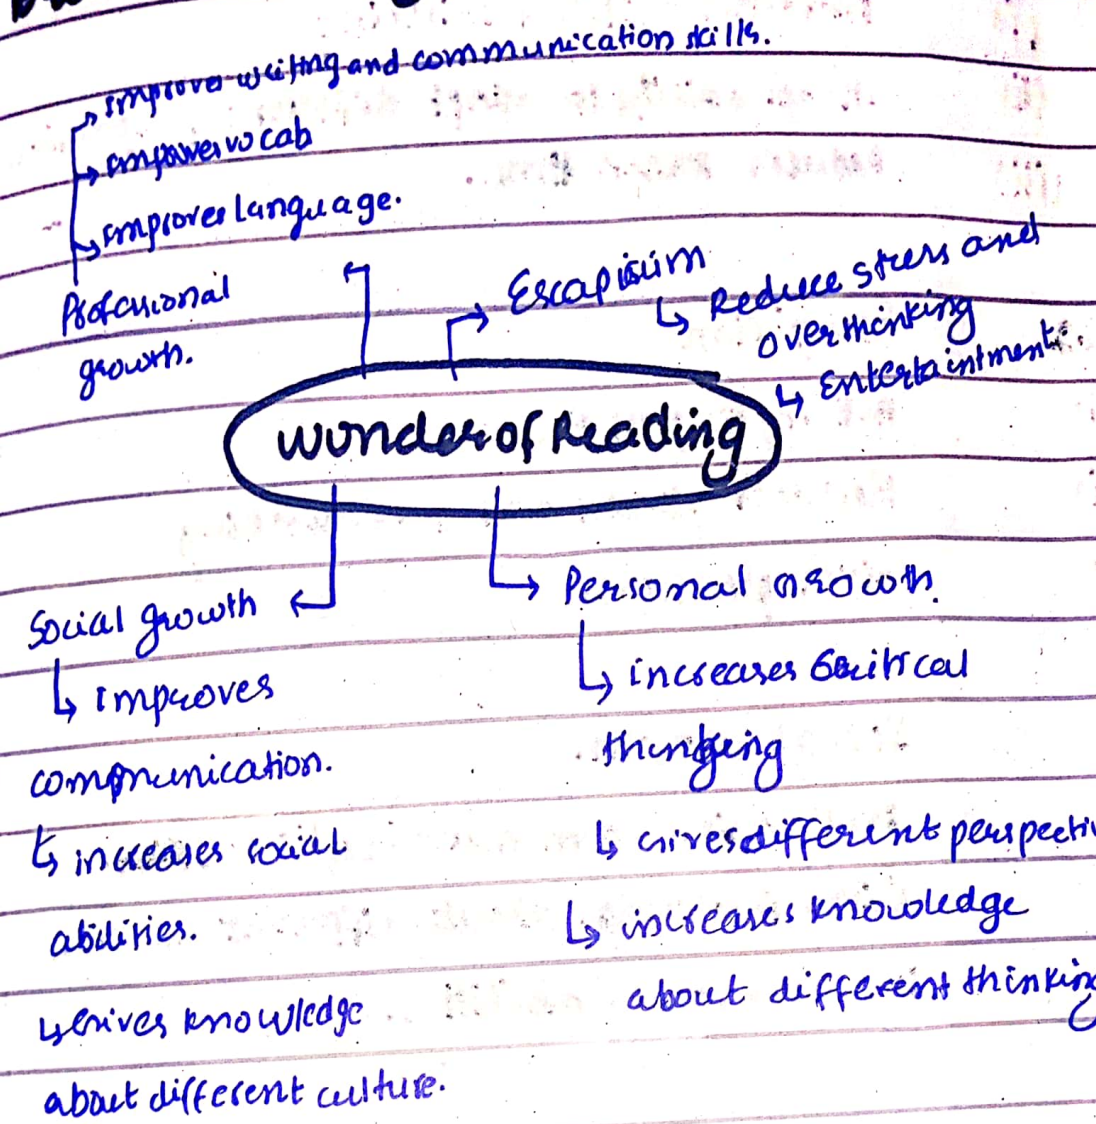 improves writing and communication skills.
empower vocab
improves language.
Professional
growth.
Escapisim
Reduce stress and
overthinking
Entertaintment.
Wonder of Reading
Social growth
improves
communication.
increases social
abilities.
Gives knowledge
about different culture.
Personal Growth.
increases critical
thinking
Gives different perspectiv
increases knowledge
about different thinking